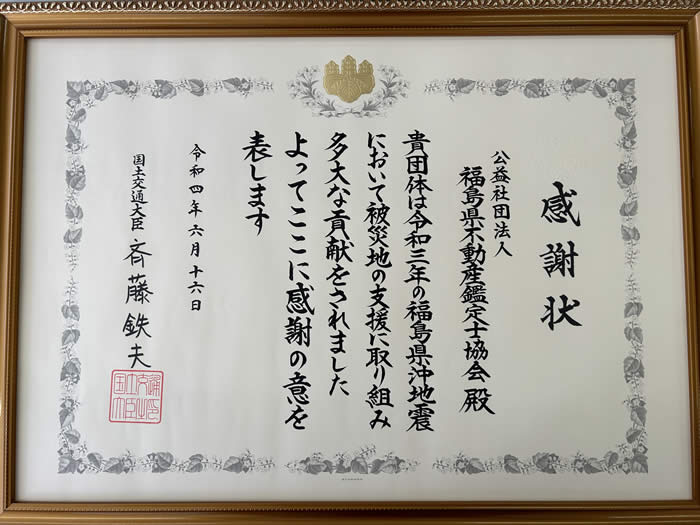 感謝状
公益社団法人
福島県不動産鑑定士協会 殿
貴団体は令和三年の福島県沖地震
において被災地の支援に取り組み
多大な貢献をされました
よってここに感謝の意を
表します
令和四年六月十六日
国土交通大臣 斉藤鉄夫
国土交通大臣之印